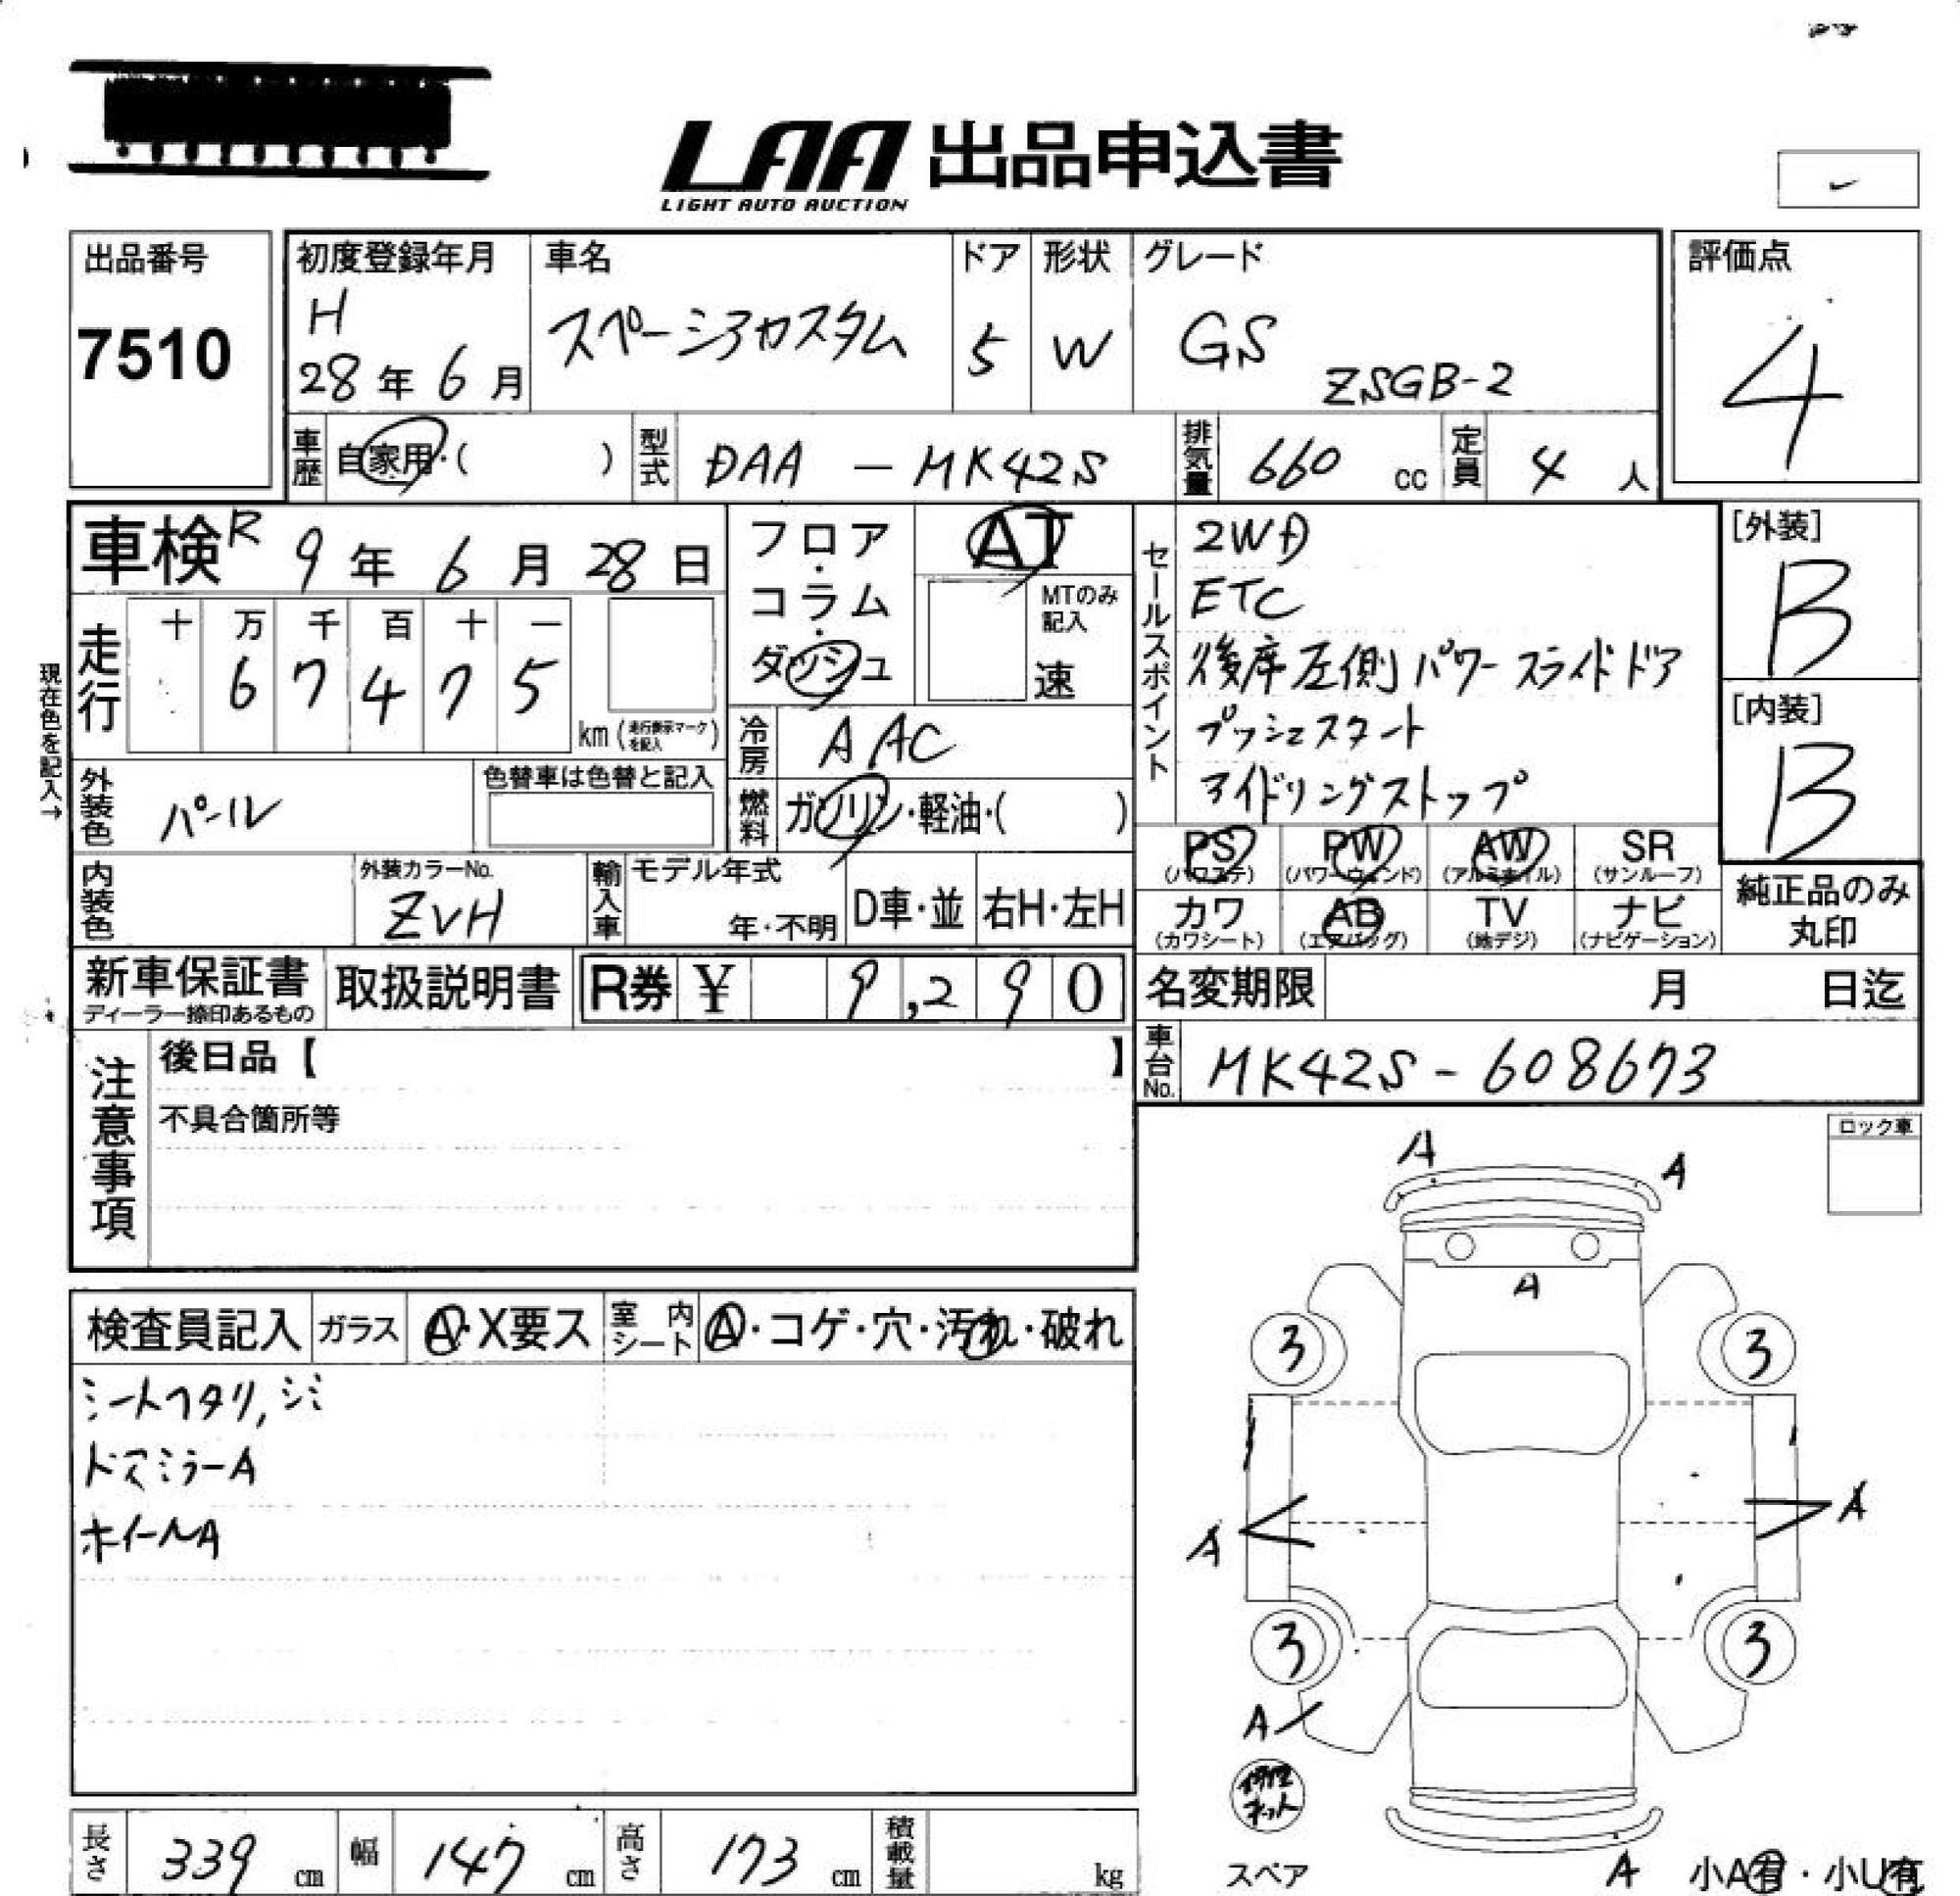 LAA 出品申込書
LIGHT AUTO AUCTION
出品番号
7510
初度登録年月
H
28年6月
車名
スペーシアカスタム
ドア
5
形状
W
グレード
GS
ZSGB-2
評価点
4
車歴
自家用・( )
型式
DAA-MK42S
排気量
660 cc
定員
4人
車検 R9年6月28日
フロア・コラム・ダッシュ
AT
MTのみ記入
速
セールスポイント
2WD
ETC
後席左側パワースライドドア
プッシュスタート
アイドリングストップ
[外装]
B
[内装]
B
現在色を記入→
走行
十 万 千 百 十 一
6 7 4 7 5
km (走行表示マークを記入)
冷房
AAC
外装色
パール
色替車は色替と記入
燃料
ガソリン・軽油・( )
PS (パワステ)
PW (パワーウィンド)
AW (アルミホイル)
SR (サンルーフ)
カワ (カワシート)
AB (エアバッグ)
TV (地デジ)
ナビ (ナビゲーション)
純正品のみ丸印
内装色
外装カラーNo.
ZVH
輸入車
モデル年式
年・不明
D車・並
右H・左H
新車保証書
ディーラー捺印あるもの
取扱説明書
R券 ¥ 9,290
名変期限 月 日迄
車台No.
MK42S-608673
注意事項
後日品【 】
不具合箇所等
ロック車
検査員記入
ガラス
A・X要ス
室内シート
A・コゲ・穴・汚れ・破れ
シートヘタリ,シミ
ドアミラーA
ホイールA
A
A
A
3
3
A
A
3
3
A
A
スペア
小A有・小U有
長さ 339 cm
幅 147 cm
高さ 173 cm
積載量 kg